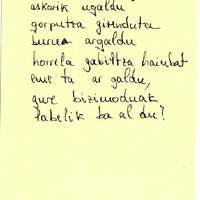 askorik ugaldu
gorputza girindutu
burua argaldu
horrela gabiltza hainbat
eme ta ar galdu,
gure bizimoduak
labelik ba al du?